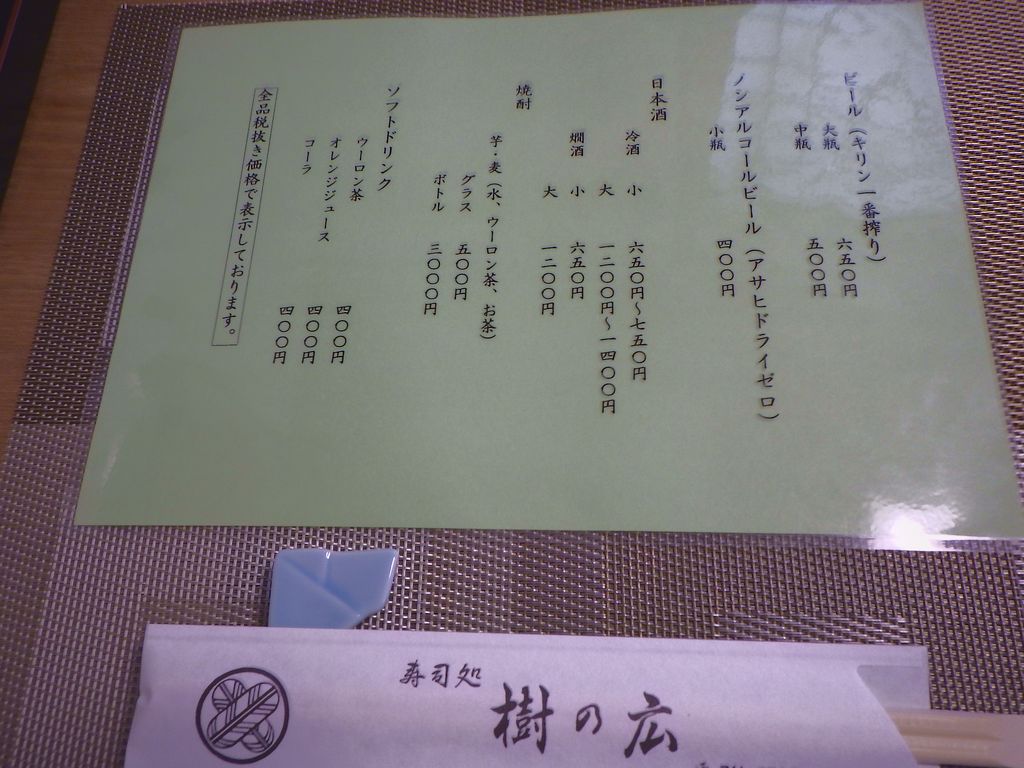 ビール（キリン一番搾り）
大瓶　六五〇円
中瓶　五〇〇円
ノンアルコールビール（アサヒドライゼロ）
小瓶　四〇〇円
日本酒
冷酒　小　六五〇円～七五〇円
大　一二〇〇円～一四〇〇円
燗酒　小　六五〇円
大　一二〇〇円
焼酎
芋・麦（水、ウーロン茶、お茶）
グラス　五〇〇円
ボトル　三〇〇〇円
ソフトドリンク
ウーロン茶　四〇〇円
オレンジジュース　四〇〇円
コーラ　四〇〇円
全品税抜き価格で表示しております。
寿司処
樹の広